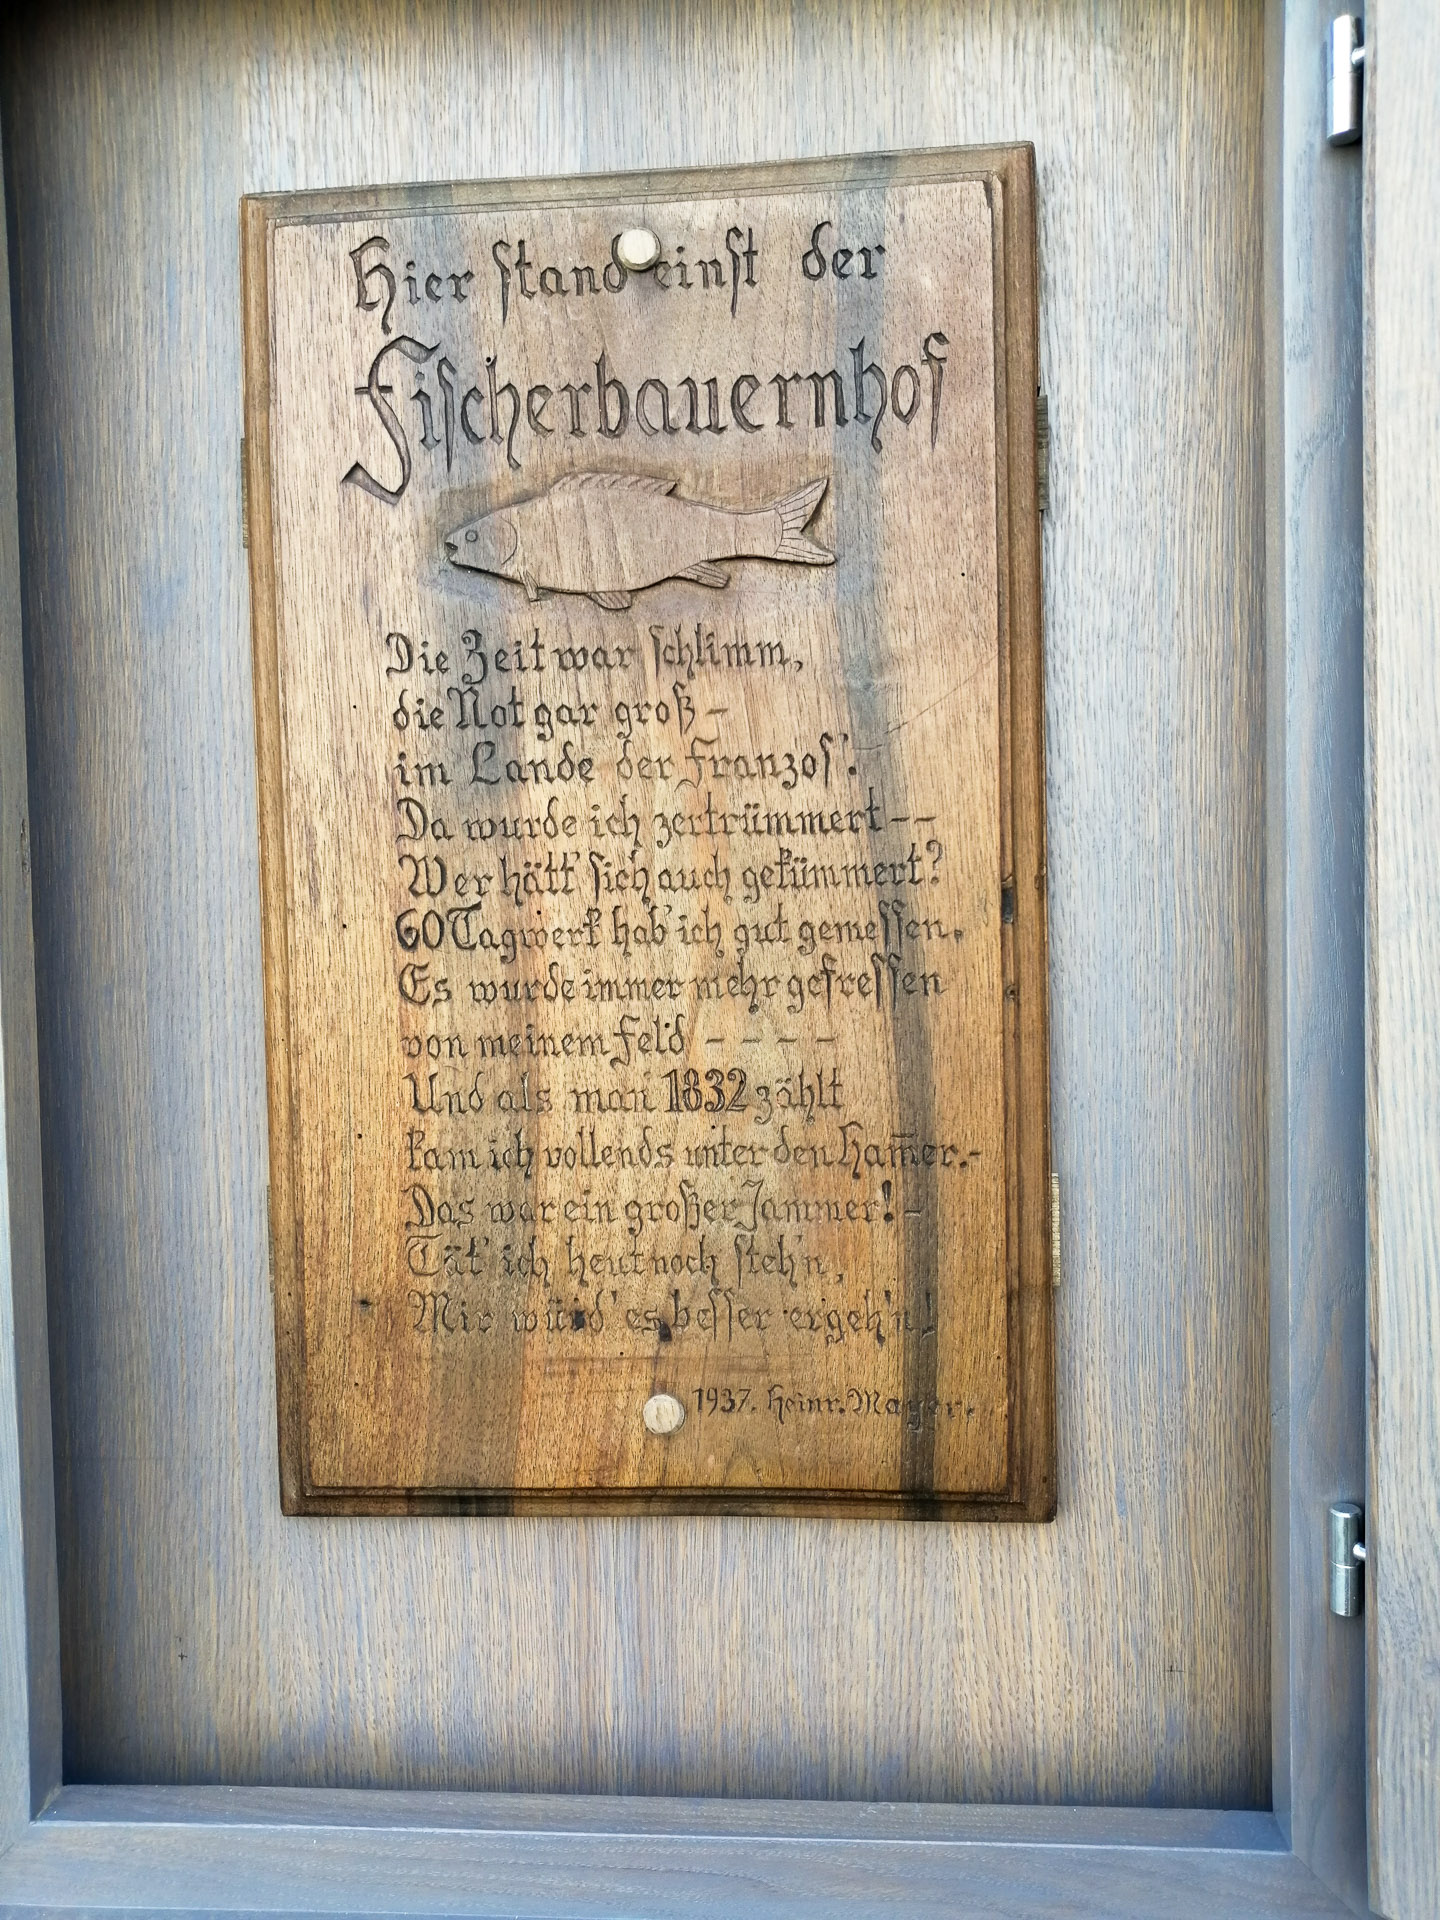 Hier stand einst der
Fischerbauernhof
Die Zeit war schlimm,
die Not gar groß –
im Lande der Franzos'.
Da wurde ich zertrümmert – –
Wer hätt' sich auch gekümmert?
60 Tagwerk hab' ich gut gemessen.
Es wurde immer mehr gefressen
von meinem Feld – – – –
Und als man 1832 zählt
kam ich vollends unter den Ham̅er. –
Das war ein großer Jammer! –
Tät' ich heut noch steh'n,
Mir würd' es besser ergeh'n!
1937. Heinr. Mayer.